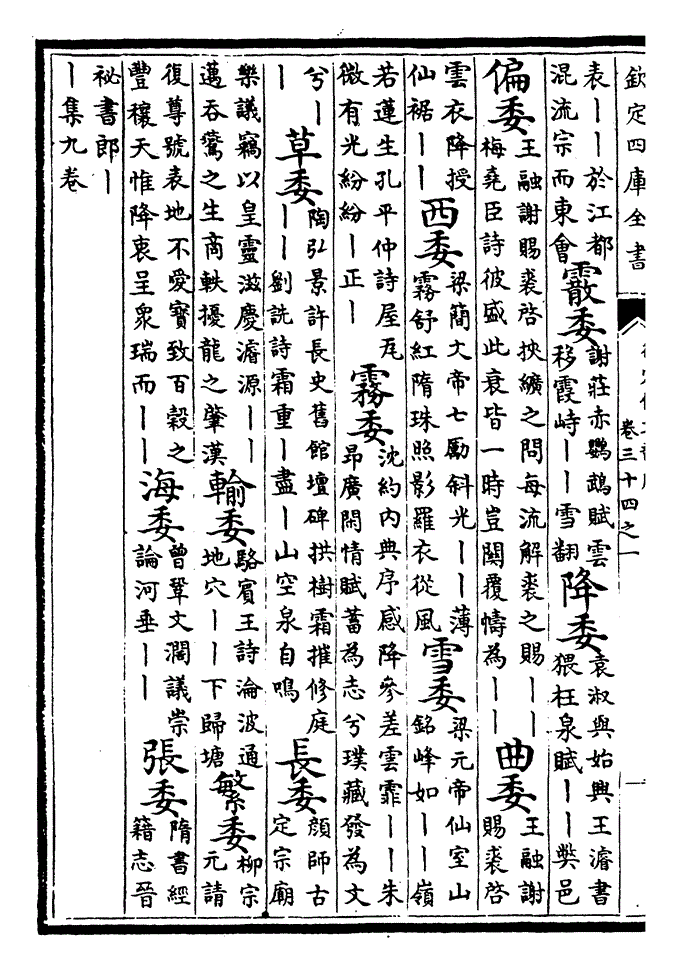 欽定四庫全書
卷三十四之一
袁丨丨於江都混流宗而東會霰委謝莊赤鸚鵡賦雲移霞峙丨丨雪翻降委袁淑與始興王濬書猥枉泉賦丨丨弊邑
偏委王融謝賜裘啓挾纊之問每流解裘之賜丨丨梅堯臣詩彼盛此衰皆一時豈關覆幬為丨丨曲委王融謝賜裘啓
雲衣降授仙裾丨丨西委梁簡文帝七勵斜光丨丨薄霧舒紅隋珠照影羅衣從風雪委梁元帝仙室山銘峰如丨丨嶺
若蓮生孔平仲詩屋瓦微有光紛紛丨正丨霧委沈約內典序感降參差雲霏丨丨朱昂廣閑情賦蓄為志兮璞藏發為文
兮丨丨草委陶弘景許長史舊館壇碑拱樹霜摧修庭丨丨劉詵詩霜重丨盡丨山空泉自鳴長委顔師古定宗廟
樂議竊以皇靈滋慶濬源丨丨邁吞鷰之生商軼擾龍之肇漢輸委駱賓王詩淪波通地穴丨丨下歸塘繁委柳宗元請
復尊號表地不愛寶致百穀之豐穰天惟降衷呈衆瑞而丨丨海委曾鞏文瀾議崇論河垂丨丨張委隋書經籍志晉
祕書郎丨丨集九卷